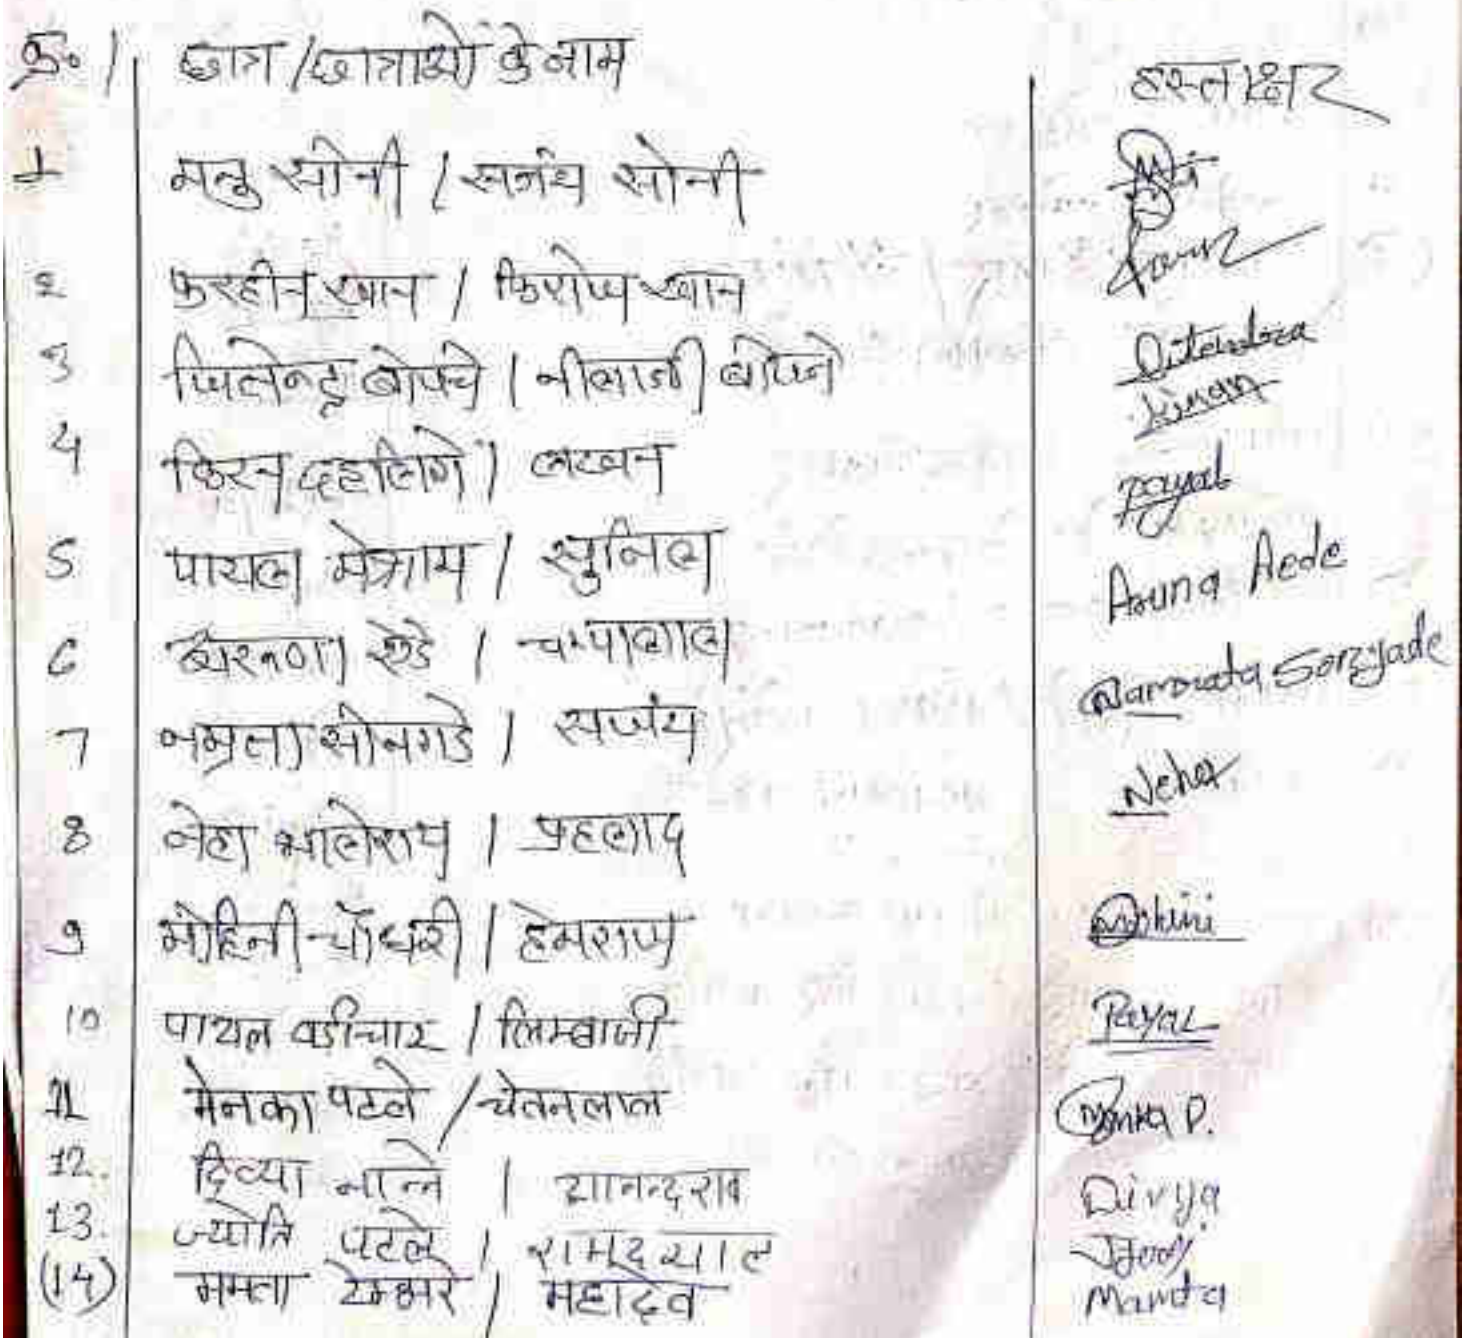 क्र. छात्र/छात्राओं के नाम हस्ताक्षर
1 मनु सोनी / संजय सोनी
2 फरहीन खान / फिरोज खान
3 जितेन्द्र बोपचे / नीलाजी बोपचे Jitendra
4 किरन दहलिंगे / लखन Kiran
5 पायल मेश्राम / सुनिल Payal
6 अरुणा ऐडे / चम्पालाल Aruna Aede
7 नम्रता सोनगडे / संजय Namrata
8 नेहा भालेराव / प्रहलाद Neha
9 मोहिनी चौधरी / हेमराज Mohini
10 पायल वडीचार / लिम्बाजी Payal
11 मेनका पटले / चेतनलाल Menka P.
12. दिव्या / आनन्दराव Divya
13. ज्योति पटले / रामदयाल Jyoti
(14) ममता टेम्भरे / महादेव Mamta